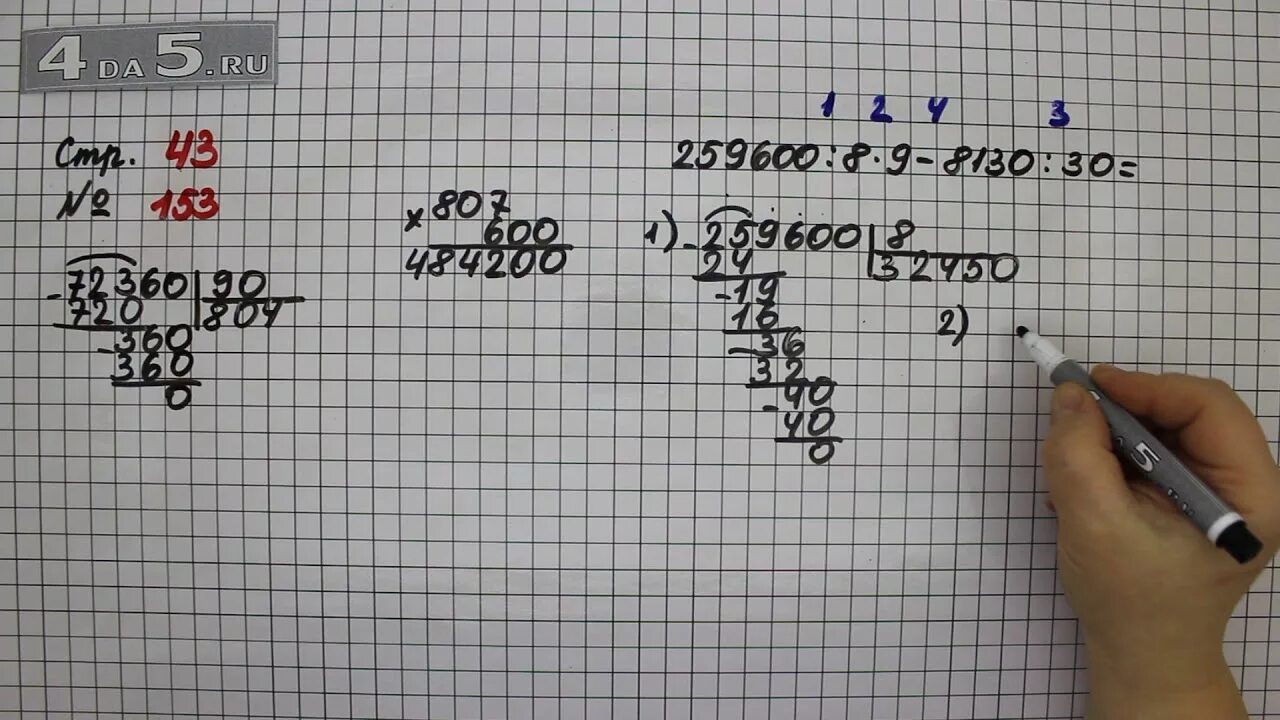 4 DA 5.RU
Стр. 43
№ 153
- 72360 | 90
720 | 804
- 360
360
0
× 807
600
484200
1 2 4 3
259600 : 8 · 9 - 8130 : 30 =
1) - 259600 | 8
24 | 32450
- 19
16
- 36
32
- 40
40
0
2)
5